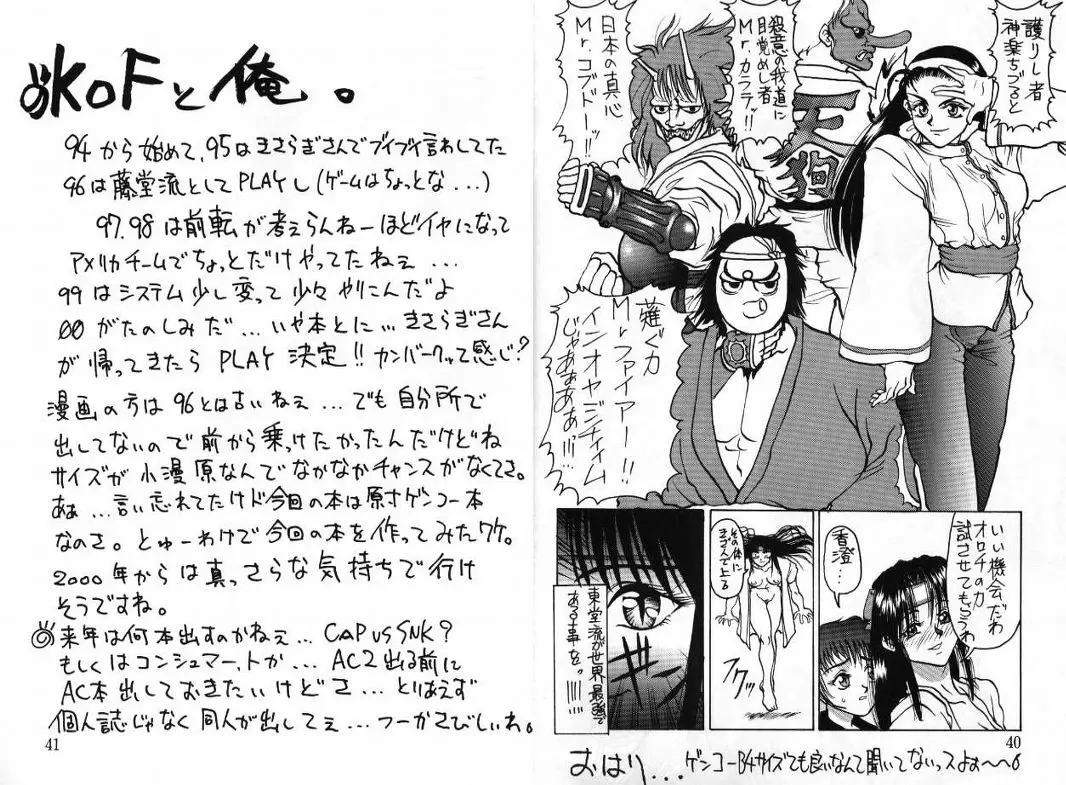 護りし者
神楽ちづると
殺意の我道に
目覚めし者
Mr.カラテッ!!
日本の真心
Mr.コブドーッ!!
天狗
薙ぐ力
Mr.ファイアー!!
イン オヤジチィィム
じゃあぁあぁぁ!!!
いい機会だわ
オロチの力
試させてもらうわ
香澄…
その体に
きざんで上る
フクッ
東堂流が世界最強で
ある事を。
おはり...
ゲンコーB4サイズでも良いなんて聞いてないっスよぉ〜〜
40
KOFと俺。
94から始めて、95はきさらぎさんでブイブイ言わしてた
96は藤堂流としてPLAYし(ゲームはちょっとな...)
97.98は前転が考えらんねーほどイヤになって
アメリカチームでちょっとだけやってたねぇ...
99はシステム少し変って少々やりこんだよ
00がたのしみだ...いや本とに...きさらぎさん
が帰ってきたらPLAY決定!!カンバークッて感じ?
漫画の方は96とは古いねぇ...でも自分所で
出してないので前から乗っけたかったんだけどね
サイズが小漫原なんでなかなかチャンスがなくてさ。
あぁ...言い忘れてたけド今回の本は原寸ゲンコー本
なのさ。とゅーわけで今回の本を作ってみたワケ。
2000年からは真っさらな気持ちで行け
そうですね。
来年は何本出すのかねぇ...CAP VS SNK?
もしくはコンシュマー、トか...AC2出る前に
AC本出しておきたいけどさ...とりあえず
個人誌じゃなく同人が出してぇ...つーかさびしいね。
41